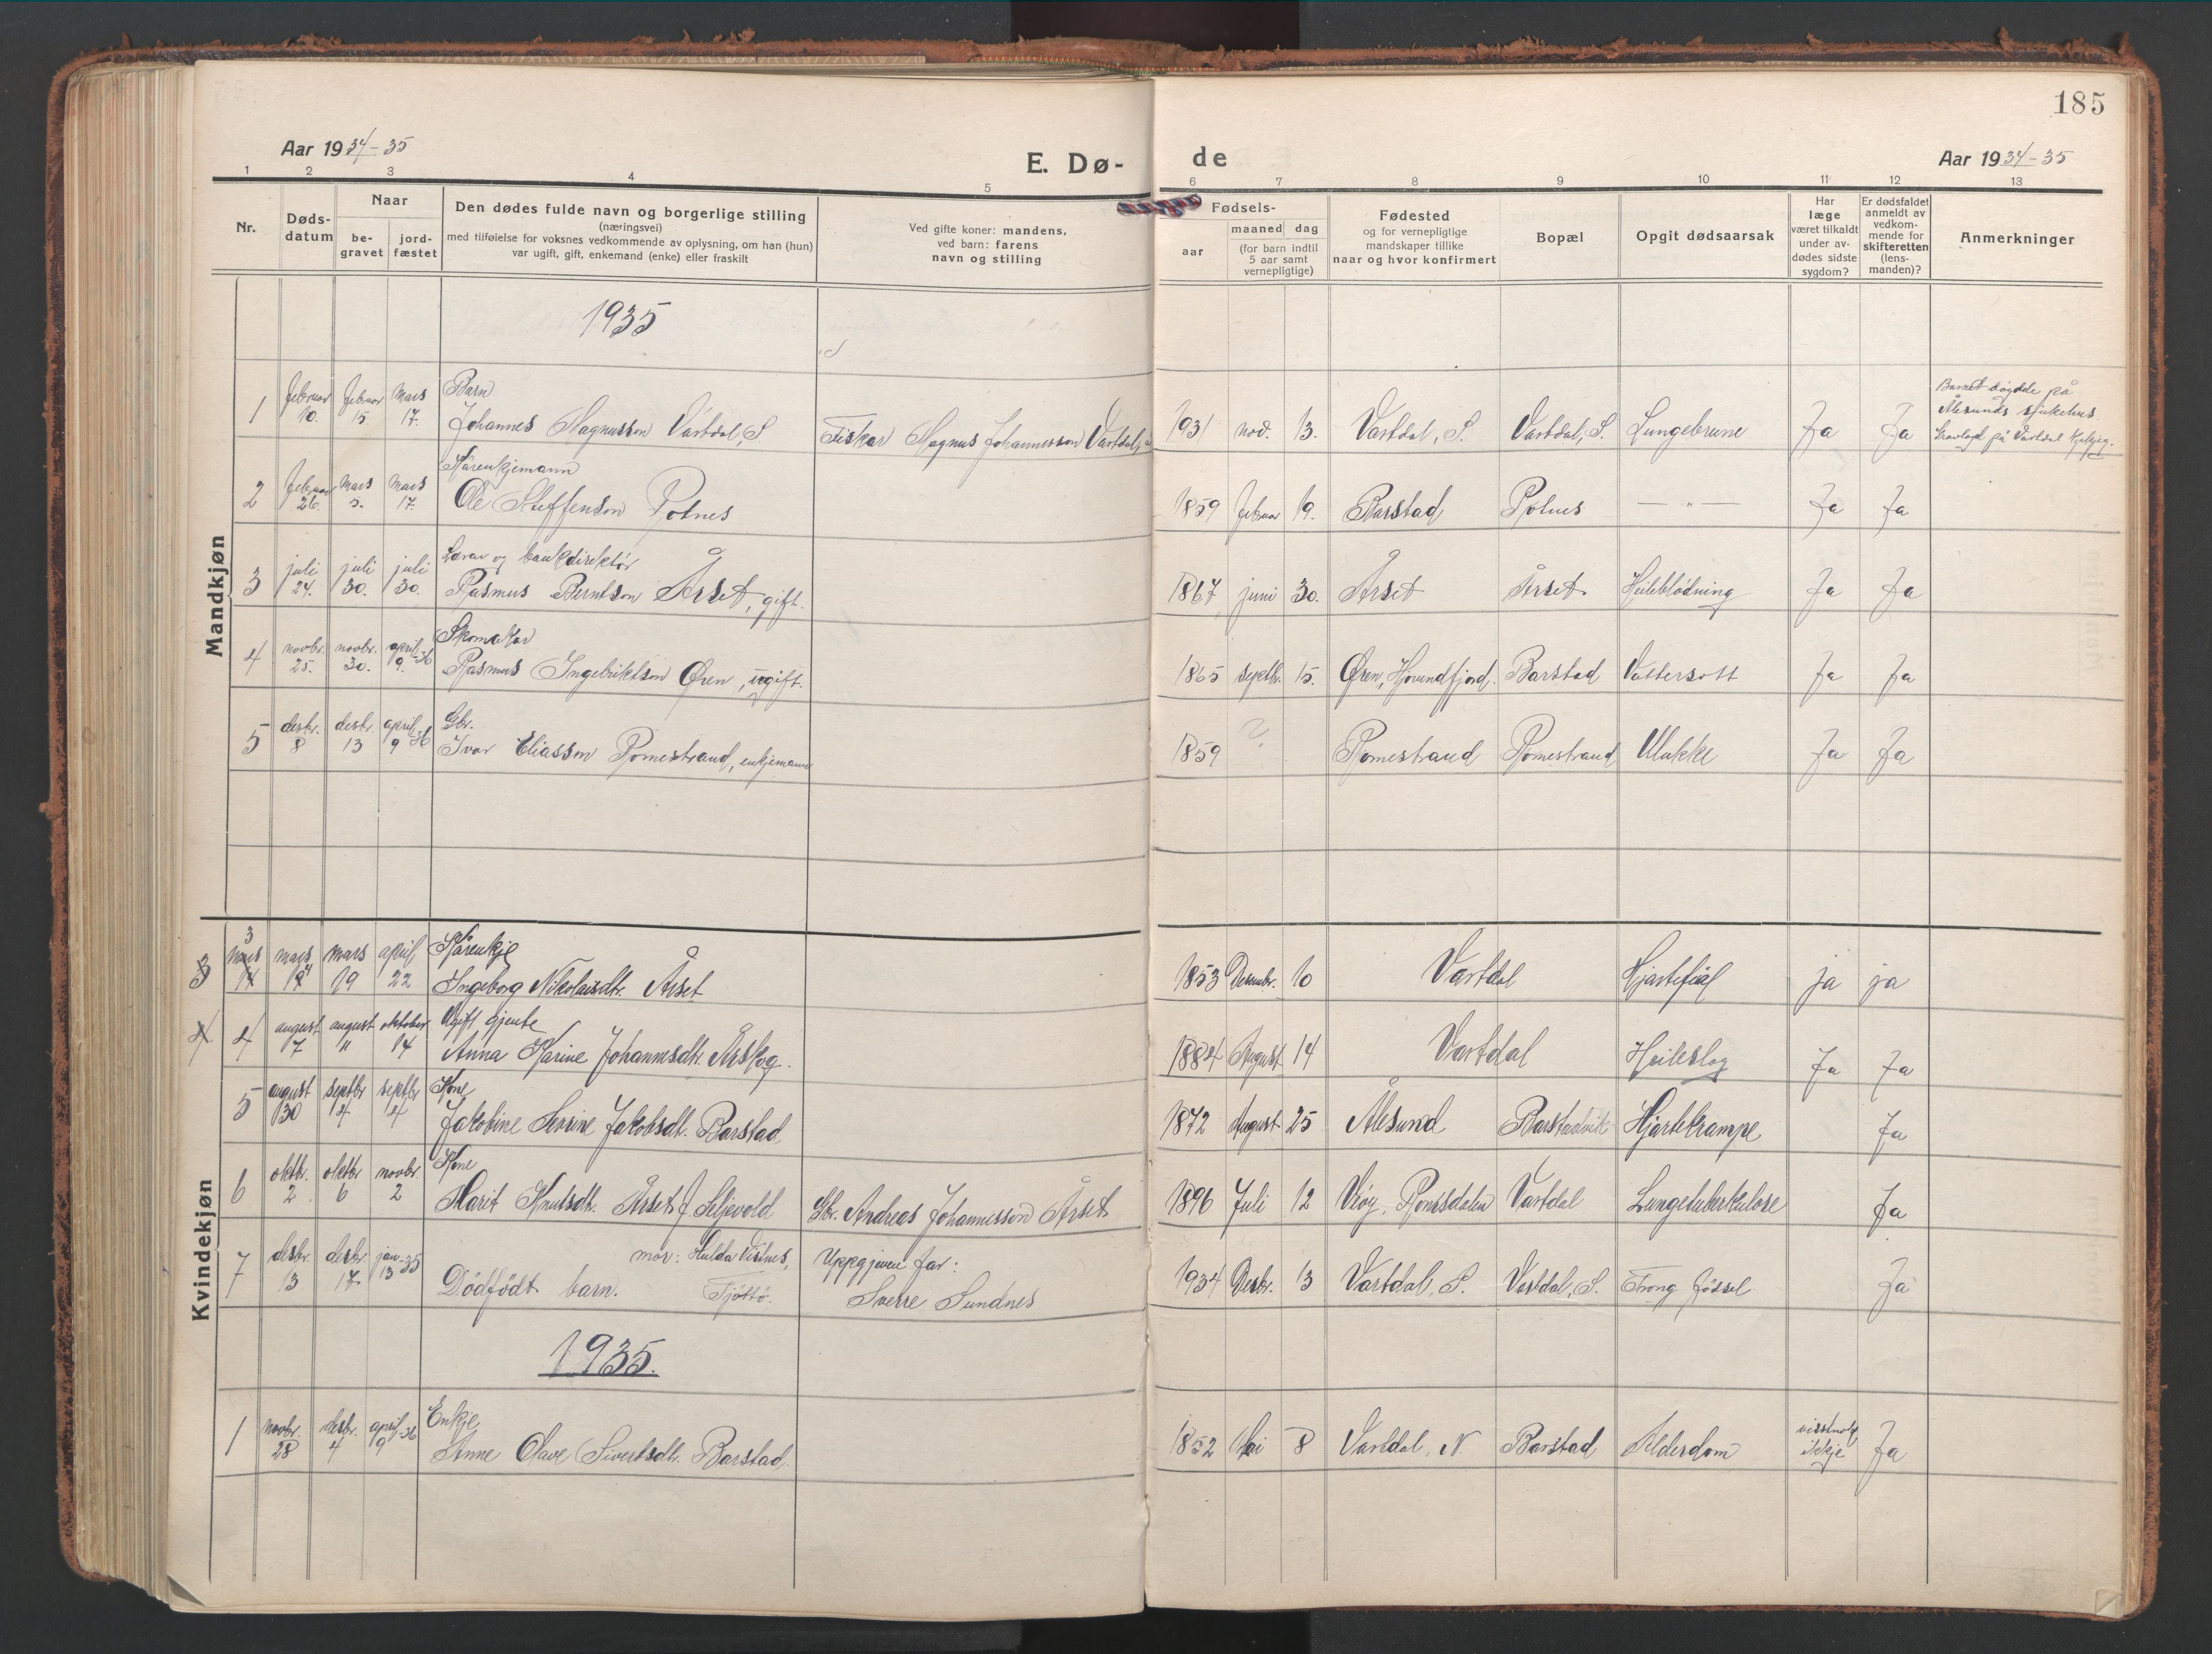 185
Aar 1934-35
E. Dø-
de
Aar 1934-35
1 2 3 4 5 6 7 8 9 10 11 12 13
Nr.
Døds-
datum
Naar
be-
gravet
jord-
fæstet
Den dødes fulde navn og borgerlige stilling
(næringsvei)
med tilføielse for voksnes vedkommende av oplysning, om han (hun)
var ugift, gift, enkemand (enke) eller fraskilt
Ved gifte koner: mandens,
ved barn: farens
navn og stilling
Fødsels-
aar
maaned dag
(for barn indtil
5 aar samt
vernepligtige)
Fødested
og for vernepligtige
mandskaper tillike
naar og hvor konfirmert
Bopæl
Opgit dødsaarsak
Har
læge
været tilkaldt
under av-
dødes sidste
sygdom?
Er dødsfaldet
anmeldt av
vedkom-
mende for
skifteretten
(lens-
manden)?
Anmerkninger
Mandkjøn
1935
1 februar 10. februar 15. mars 17. Barn
Johannes Magnusson Vartdal, S. Fiskar Magnus Johannesson Vartdal, 1931 nov. 13. Vartdal, S. Vartdal, S. Lungebrune Ja Ja
Barnet døydde på
Ålesunds sjukehus
Gravlagd på Vartdal kyrkjeg.
2 februar 26. mars 5. mars 17. Kårenkjemann
Ole Steffenson Rotnes 1859 februar 19. Barstad Rotnes — " — Ja Ja
3 juli 24. juli 30. juli 30. Lærar og bankdirektør
Rasmus Berntson Årset, gift. 1867 juni 30. Årset Årset Heilebløding Ja Ja
4 novbr. 25. novbr. 30. april 9.-36 Skomakar
Rasmus Ingebriktson Øren, ugift. 1865 septbr. 15. Øren, Hjørundfjord. Barstad Vattersott Ja Ja
5 desbr. 8 desbr. 13 april 9 -36 Gbr.
Ivar Eliasson Romestrand, enkjemann 1859 ? Romestrand Romestrand Ulukke Ja Ja
Kvindekjøn
3 3 mars 14 mars 14 mars 19 april 22 Kårenkje
Ingeborg Nikolaisdtr. Årset 1853 Desembr. 10 Vartdal Hjartefeil ja ja
4 4 august 7 august 11 oktober 14 Ugift gjente
Anna Karine Johannesdtr. Årskog. 1884 August 14 Vartdal Heileslag Ja Ja
5 august 30 septbr 4 septbr 4 Kone
Jakobine Serine Jakobsdt. Barstad 1872 August 25 Ålesund Barstadvik Hjartekrampe Ja
6 oktbr. 2 oktbr 6 novbr. 2 Kone
Marit Knutsdtr. Årset f. Seljevold Gbr. Andreas Johannesson Årset 1896 Juli 12 Veøy, Romsdalen Vartdal Lungetuberkulose Ja
7 desbr. 13 desbr 17 jan-35 13 mor: Hulda Vistnes, Uppgjeven far:
Dødfødt barn. Tjøttø. Sverre Sundnes 1934 Desbr. 13 Vartdal, S. Vartdal, S. Trong fødsel Ja
1935.
1 novbr. 28 desbr. 4 april-36 9 Enkje
Anne Olave Sivertsdtr. Barstad 1852 Mai 8 Vartdal, N. Barstad Alderdom visstnok ikkje Ja